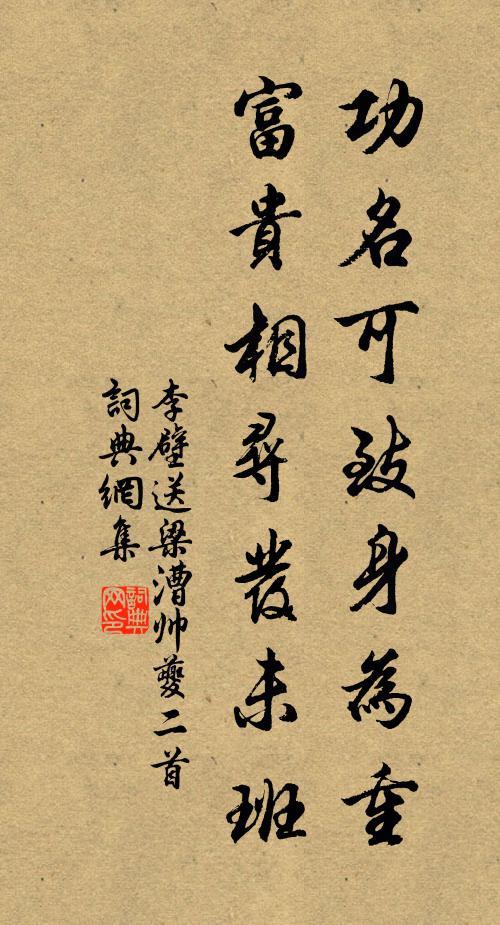 功名可致身為重
富貴相尋發未班
李壁送梁漕帅夔二首
詞典網集
詞典
网印